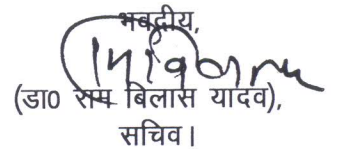 भवदीय,
(डा0 राम बिलास यादव),
सचिव।